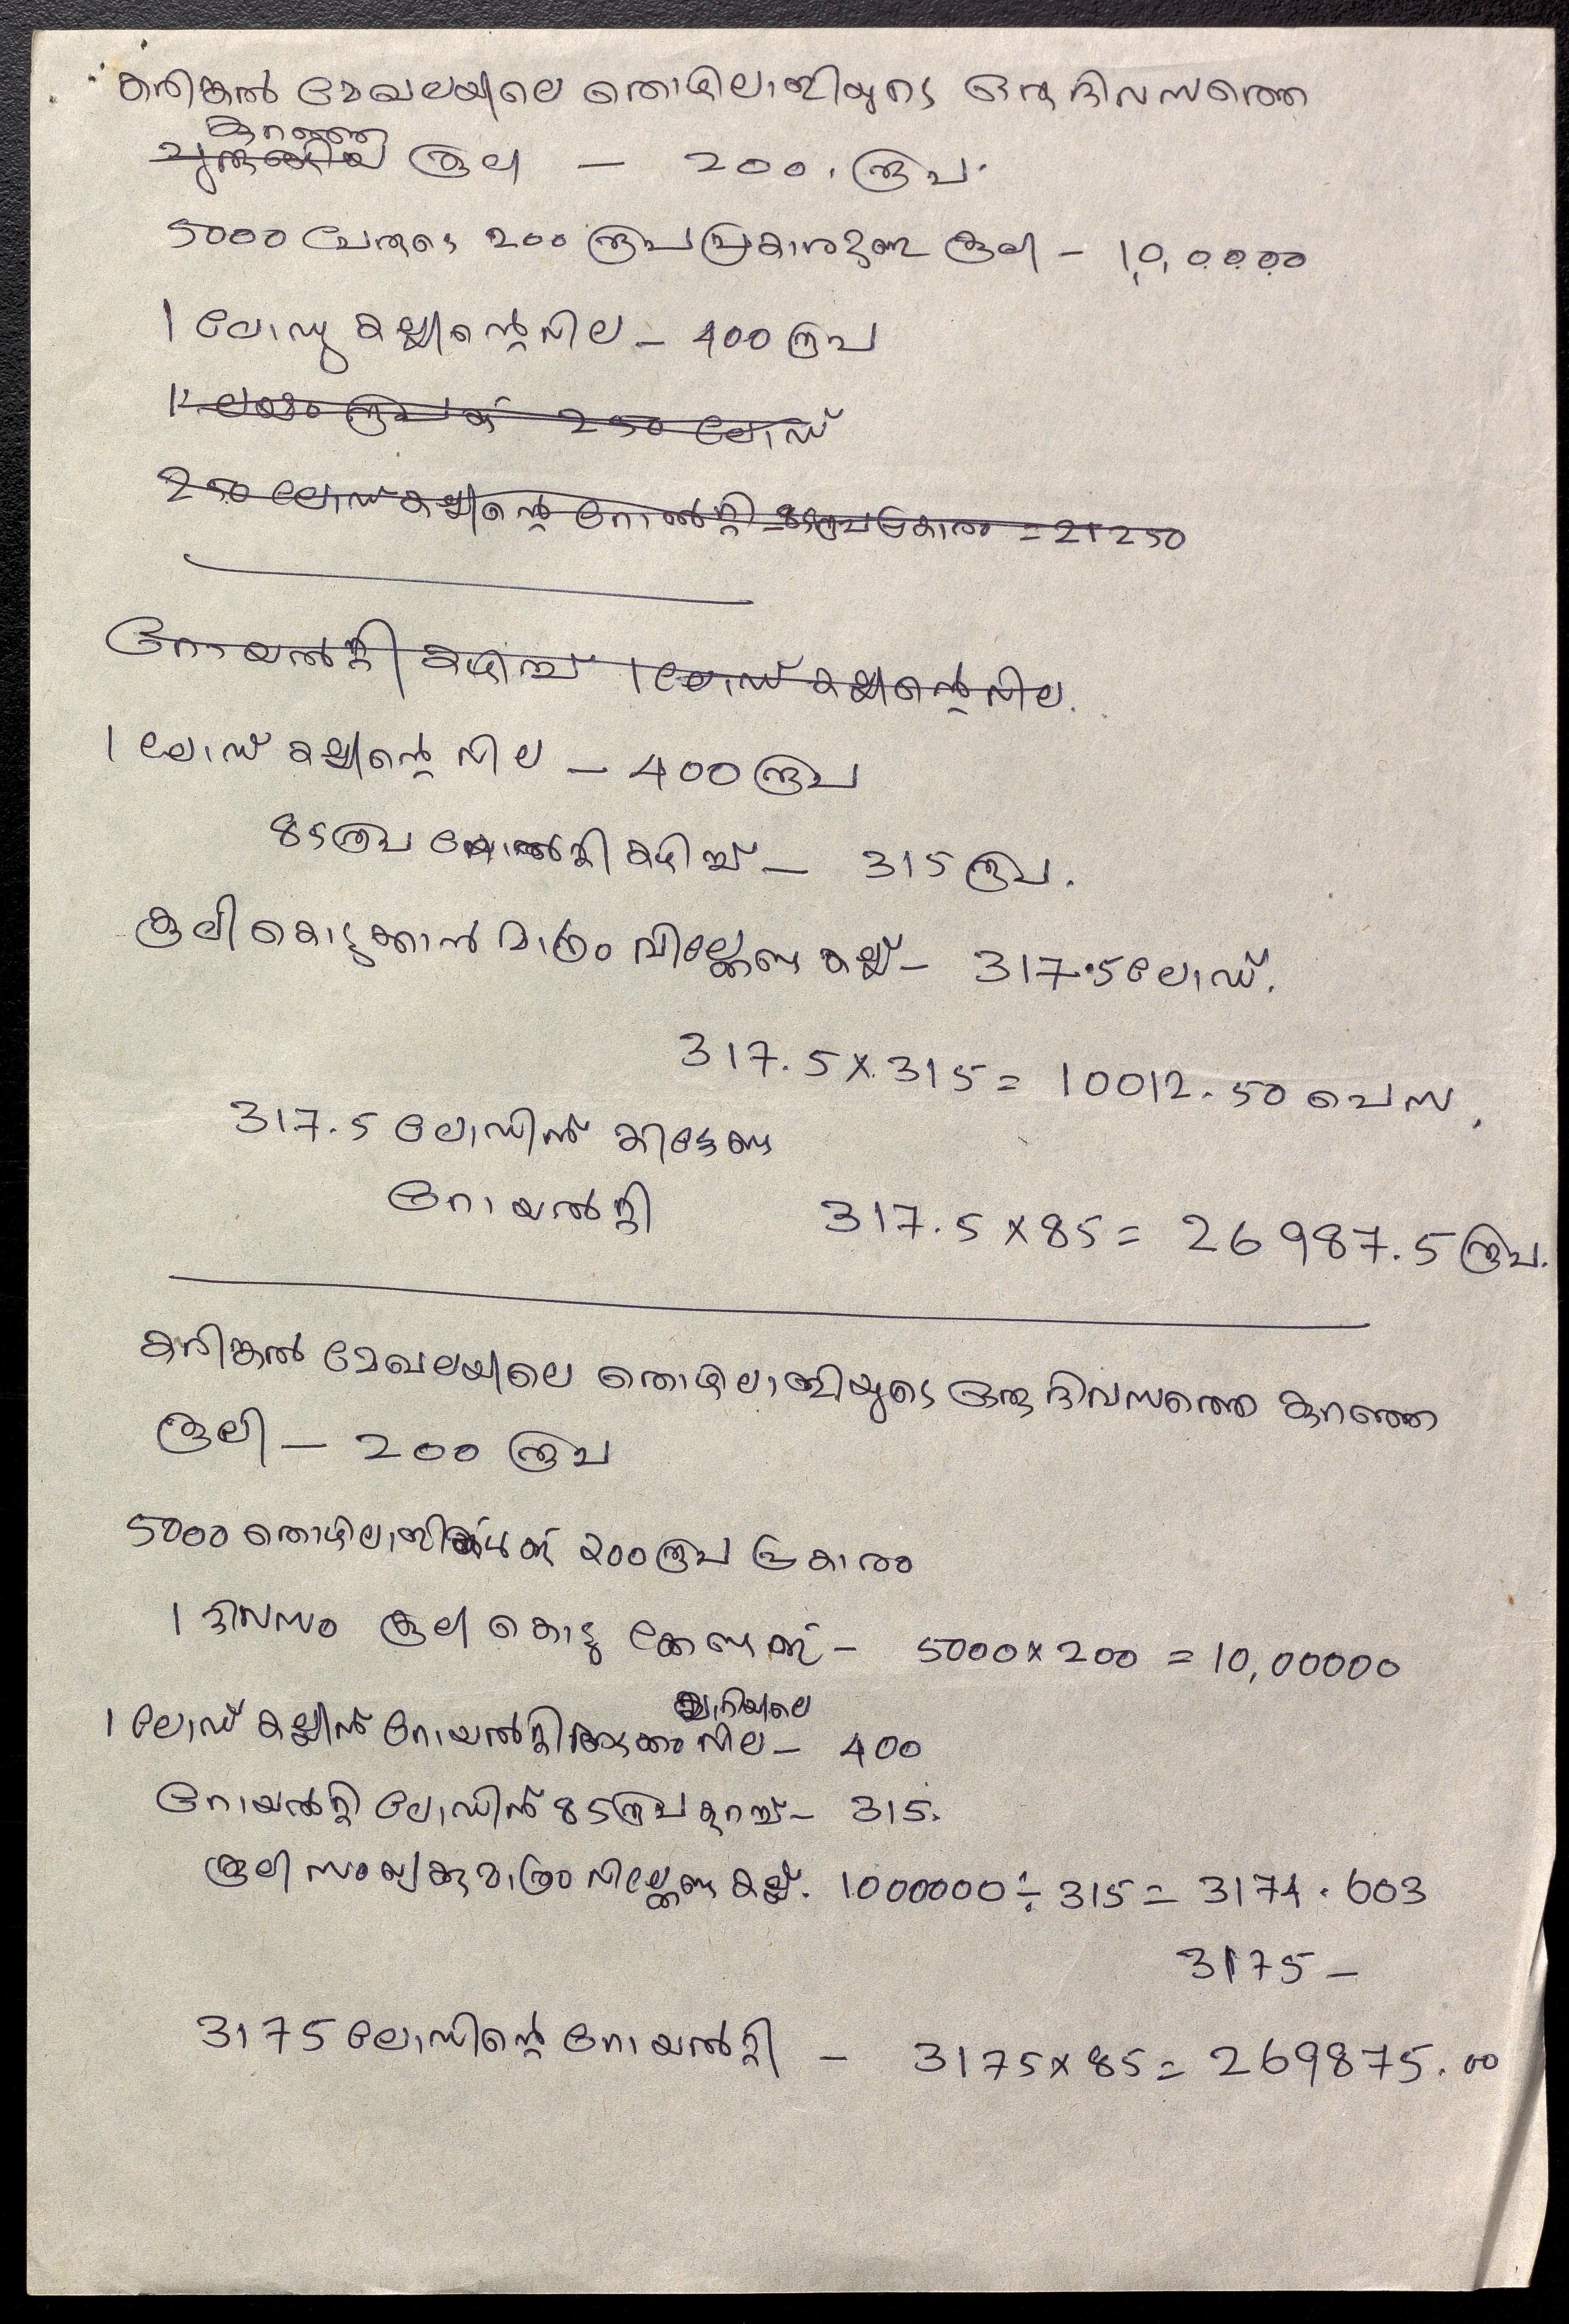 കരിങ്കൽ മേഖലയിലെ തൊഴിലാളിയുടെ ഒരു ദിവസത്തെ
കുറഞ്ഞ
ചുരുങ്ങിയ കൂലി – 200. രൂപ.
5000 പേരുടെ 200 രൂപ പ്രകാരമുള്ള കൂലി – 10,00000
1 ലോഡു കല്ലിന്റെ വില – 400 രൂപ
1 ലക്ഷം രൂപക്ക് 250 ലോഡ്
250 ലോഡ് കല്ലിന്റെ റോയൽറ്റി = 85 രൂപ പ്രകാരം = 21250
റോയൽറ്റി കഴിച്ച് 1 ലോഡ് കല്ലിന്റെ വില.
1 ലോഡ് കല്ലിന്റെ വില – 400 രൂപ
85 രൂപ റോയൽറ്റി കഴിച്ച് – 315 രൂപ.
കൂലി കൊടുക്കാൻ മാത്രം വില്ക്കേണ്ട കല്ല് – 317.5 ലോഡ്.
317.5 x 315 = 10012.50 പൈസ.
317.5 ലോഡിന് കിട്ടേണ്ട
റോയൽറ്റി 317.5 x 85 = 26987.5 രൂപ.
കരിങ്കൽ മേഖലയിലെ തൊഴിലാളിയുടെ ഒരു ദിവസത്തെ കുറഞ്ഞ
കൂലി – 200 രൂപ
5000 തൊഴിലാളികൾക്ക് 200 രൂപ പ്രകാരം
1 ദിവസം കൂലി കൊടുക്കേണ്ടത് – 5000 x 200 = 10,00000
ക്വാറിയിലെ
1 ലോഡ് കല്ലിന് റോയൽറ്റി അടക്കം വില – 400
റോയൽറ്റി ലോഡിന് 85 രൂപ കുറച്ച് – 315.
കൂലി സംഖ്യക്കു മാത്രം വില്ക്കേണ്ട കല്ല്. 1000000 ÷ 315 = 3174.603
3175 –
3175 ലോഡിന്റെ റോയൽറ്റി – 3175 x 85 = 269875.00